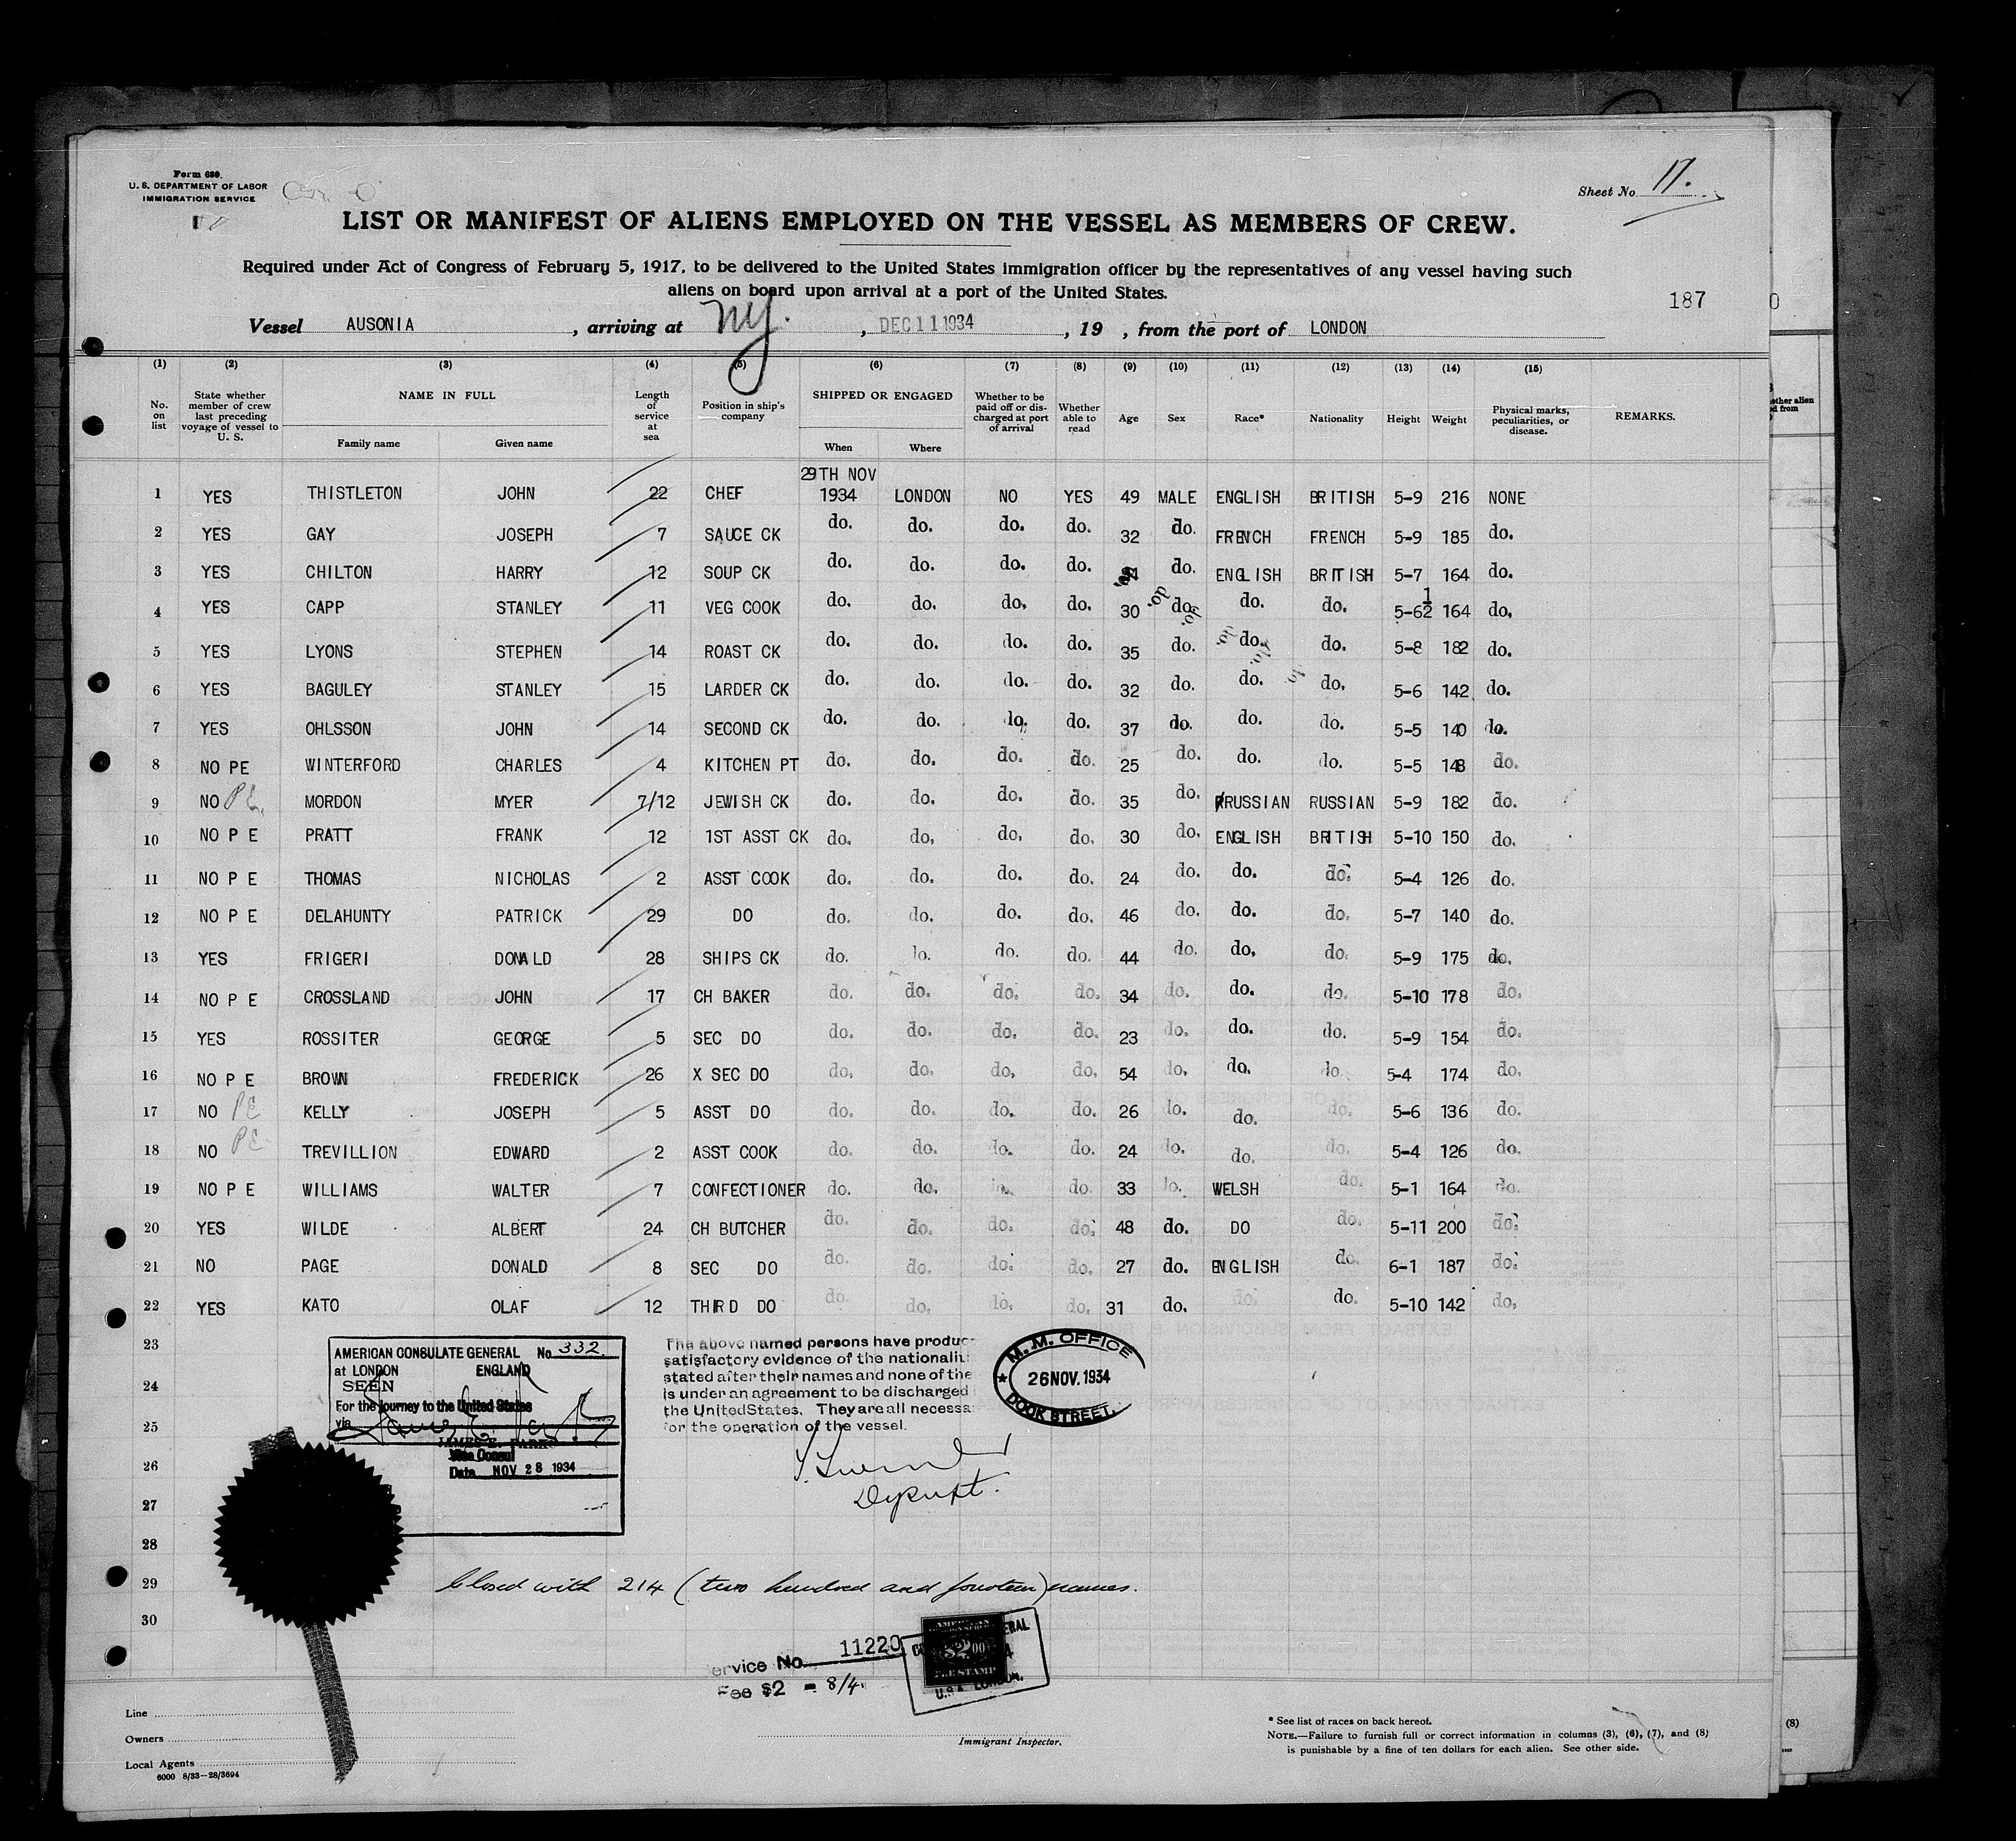 Form 689.
U. S. DEPARTMENT OF LABOR
IMMIGRATION SERVICE
Sheet No 17.
LIST OR MANIFEST OF ALIENS EMPLOYED ON THE VESSEL AS MEMBERS OF CREW.
Required under Act of Congress of February 5, 1917, to be delivered to the United States immigration officer by the representatives of any vessel having such
aliens on board upon arrival at a port of the United States.
187
Vessel AUSONIA , arriving at NY. , DEC 11 1934 , 19 , from the port of LONDON
(1) (2) (3) (4) (5) (6) (7) (8) (9) (10) (11) (12) (13) (14) (15)
No. on list State whether member of crew last preceding voyage of vessel to U. S. NAME IN FULL Family name Given name Length of service at sea Position in ship's company SHIPPED OR ENGAGED When Where Whether to be paid off or discharged at port of arrival Whether able to read Age Sex Race* Nationality Height Weight Physical marks, peculiarities, or disease. REMARKS.
29TH NOV
1 YES THISTLETON JOHN 22 CHEF 1934 LONDON NO YES 49 MALE ENGLISH BRITISH 5-9 216 NONE
2 YES GAY JOSEPH 7 SAUCE CK do. do. do. do. 32 do. FRENCH FRENCH 5-9 185 do.
3 YES CHILTON HARRY 12 SOUP CK do. do. do. do. do. ENGLISH BRITISH 5-7 164 do.
4 YES CAPP STANLEY 11 VEG COOK do. do. do. do. 30 do. do. do. 5-6½ 164 do.
5 YES LYONS STEPHEN 14 ROAST CK do. do. do. do. 35 do. do. do. 5-8 182 do.
6 YES BAGULEY STANLEY 15 LARDER CK do. do. do. do. 32 do. do. do. 5-6 142 do.
7 YES OHLSSON JOHN 14 SECOND CK do. do. do. do. 37 do. do. do. 5-5 140 do.
8 NO PE WINTERFORD CHARLES 4 KITCHEN PT do. do. do. do. 25 do. do. do. 5-5 148 do.
9 NO PE. MORDON MYER 7/12 JEWISH CK do. do. do. do. 35 do. RUSSIAN RUSSIAN 5-9 182 do.
10 NO P E PRATT FRANK 12 1ST ASST CK do. do. do. do. 30 do. ENGLISH BRITISH 5-10 150 do.
11 NO P E THOMAS NICHOLAS 2 ASST COOK do. do. do. do. 24 do. do. do. 5-4 126 do.
12 NO P E DELAHUNTY PATRICK 29 DO do. do. do. do. 46 do. do. do. 5-7 140 do.
13 YES FRIGERI DONALD 28 SHIPS CK do. do. do. do. 44 do. do. do. 5-9 175 do.
14 NO P E CROSSLAND JOHN 17 CH BAKER do. do. do. do. 34 do. do. do. 5-10 178 do.
15 YES ROSSITER GEORGE 5 SEC DO do. do. do. do. 23 do. do. do. 5-9 154 do.
16 NO P E BROWN FREDERICK 26 X SEC DO do. do. do. do. 54 do. do. do. 5-4 174 do.
17 NO PE KELLY JOSEPH 5 ASST DO do. do. do. do. 26 do. do. do. 5-6 136 do.
18 NO PE TREVILLION EDWARD 2 ASST COOK do. do. do. do. 24 do. do. do. 5-4 126 do.
19 NO P E WILLIAMS WALTER 7 CONFECTIONER do. do. do. do. 33 do. WELSH do. 5-1 164 do.
20 YES WILDE ALBERT 24 CH BUTCHER do. do. do. do. 48 do. DO do. 5-11 200 do.
21 NO PAGE DONALD 8 SEC DO do. do. do. do. 27 do. ENGLISH do. 6-1 187 do.
22 YES KATO OLAF 12 THIRD DO do. do. do. do. 31 do. do. do. 5-10 142 do.
23
24
25
26
27
28
29
30
AMERICAN CONSULATE GENERAL No. 332.
at LONDON ENGLAND
SEEN
For the journey to the United States
via
Vice Consul
Date NOV 28 1934
The above named persons have produc
satisfactory evidence of the nationali
stated after their names and none of the
is under an agreement to be discharged
the United States. They are all necessa
for the operation of the vessel.
M. M. OFFICE
26 NOV. 1934
DOCK STREET.
Closed with 214 (two hundred and fourteen) names.
ervice No. 11220
Fee $2 = 8/4
U.S.A. LONDON.
Line
Owners
Local Agents
6000 8/33—28/3694
Immigrant Inspector.
* See list of races on back hereof.
NOTE.—Failure to furnish full or correct information in columns (3), (6), (7), and (8)
is punishable by a fine of ten dollars for each alien. See other side.
(8)